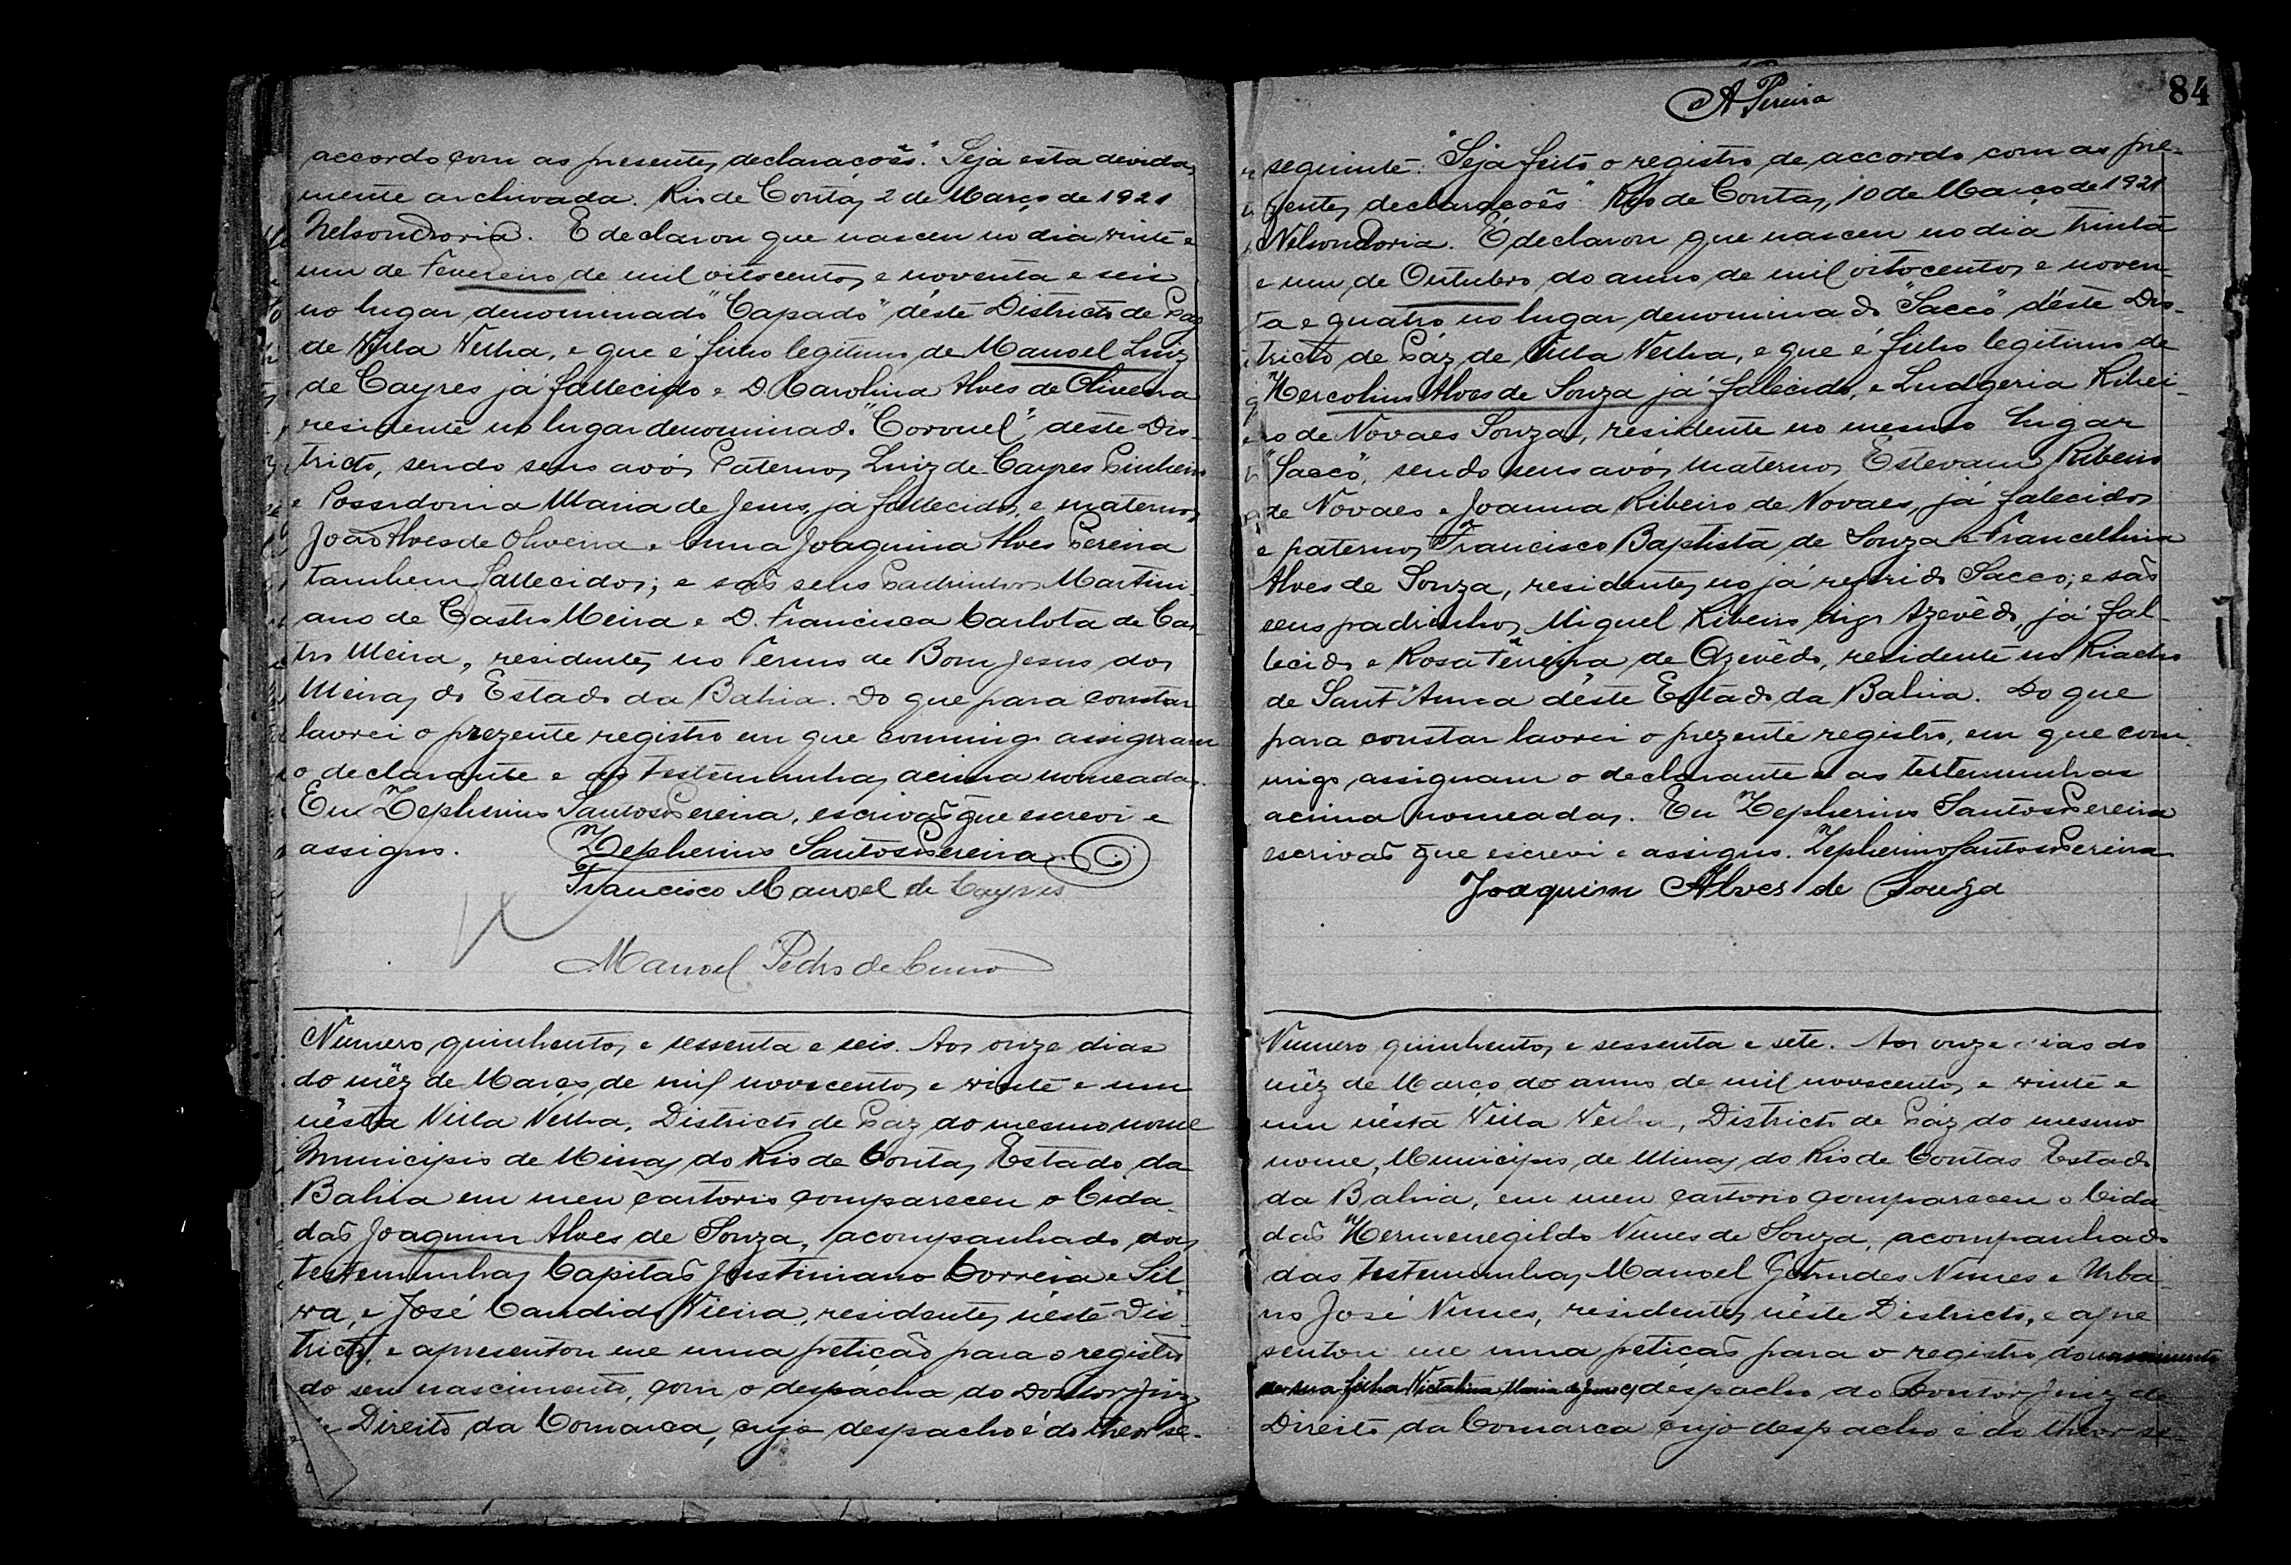 accordo com as presentes declaracoẽs." Seja esta devida
mente archivada. Rio de Contas, 2 de Março de 1921
Nelson Doria. E declarou que nasceu no dia vinte e
um de Fevereiro de mil oitocentos e noventa e seis
no lugar denominado "Capado" déste Districto de Paz
de Villa Velha, e que é filho legitimo de Manoel Luiz
de Cayres já fallecido e D. Carolina Alves de Oliveira
residente no lugar denominado "Coronel" deste Dis-
tricto, sendo seus avós Paternos Luiz de Cayres Pinheiro
e Possidonia Maria de Jesus, já fallecidos, e maternos
João Alves de Oliveira e Anna Joaquina Alves Pereira
tambem fallecidos; e são seus Padrinhos Martini-
ano de Castro Meira e D. Francisca Carlota de Cas-
tro Meira, residentes no Termo de Bom Jesus dos
Meiras do Estado da Bahia. Do que para constar
lavrei o prezente registro em que commigo assignam
o declarante e as testemunhas acima nomeadas.
Eu Zepherino Santos Pereira, escrivão que escrevi e
assigno. Zepherino Santos Pereira
Francisco Manoel de Cayres
Manoel Pedro de
Numero quinhentos e sessenta e seis. Aos onze dias
do mêz de Março, de mil novecentos e vinte e um
nésta Villa Velha, Districto de Páz do mesmo nome
Municipio de Minas do Rio de Contas, Estado da
Bahia em meu cartorio compareceu o Cida-
dão Joaquim Alves de Souza, acompanhado das
testemunhas Capitão Justiniano Correia e Sil-
va, e José Candido Vieira, residentes néste Dis-
tricto, e apresentou me uma petição para o registro
do seu nascimento, com o despacha do Doutor Juiz
de Direito da Comarca, cujo despacho é do theor se-
A Pereira
84
seguinte: "Seja feito o registro de accordo com as pre-
sentes declaracoẽs" Rio de Contas, 10 de Março de 1921
Nelson Doria. E declarou que nasceu no dia trinta
e um de Outubro do anno de mil oitocentos e noven-
ta e quatro no lugar denominado "Sacco" déste Dis-
tricto de Páz de Villa Velha, e que é filho legitimo de
Hercolino Alves de Souza já falecido, e Ludgeria Ribei-
ro de Novaes Souza, residente no mesmo lugar
"Sacco", sendo seus avós maternos Estevam Ribeiro
de Novaes e Joanna Ribeiro de Novaes, já falecidos
e paternos Francisco Baptista de Souza e Francellina
Alves de Souza, residentes no já referido Sacco; e são
seus padrinhos Miguel Ribeiro digo Azevêdo, já fal-
lecido e Rosa Ferreira de Azevêdo, residente no Riacho
de Sant'Anna déste Estado da Bahia. Do que
para constar lavrei o prezente registro, em que com-
migo assignam o declarante e as testemunhas
acima nomeadas. Eu Zepherino Santos Pereira
escrivão que escrevi e assigno. Zepherino Santos Pereira
Joaquim Alves de Souza
Numero quinhentos e sessenta e sete. Aos onze dias do
mêz de Março do anno de mil novecentos e vinte e
um nésta Villa Velha, Districto de Páz do mesmo
nome, Municipio de Minas do Rio de Contas Estado
da Bahia, em meu cartorio compareceu o Cida-
dão Hermenegildo Nunes de Souza, acompanhado
das testemunhas Manoel Nunes e Urba-
no José Nunes, residentes néste Districto, e apre
sentou me uma petição para o registro do nascimento
de sua filha Victalina Maria de Jesus despacho do Doutor Juiz de
Direito da Comarca cujo despacho é do theor se-